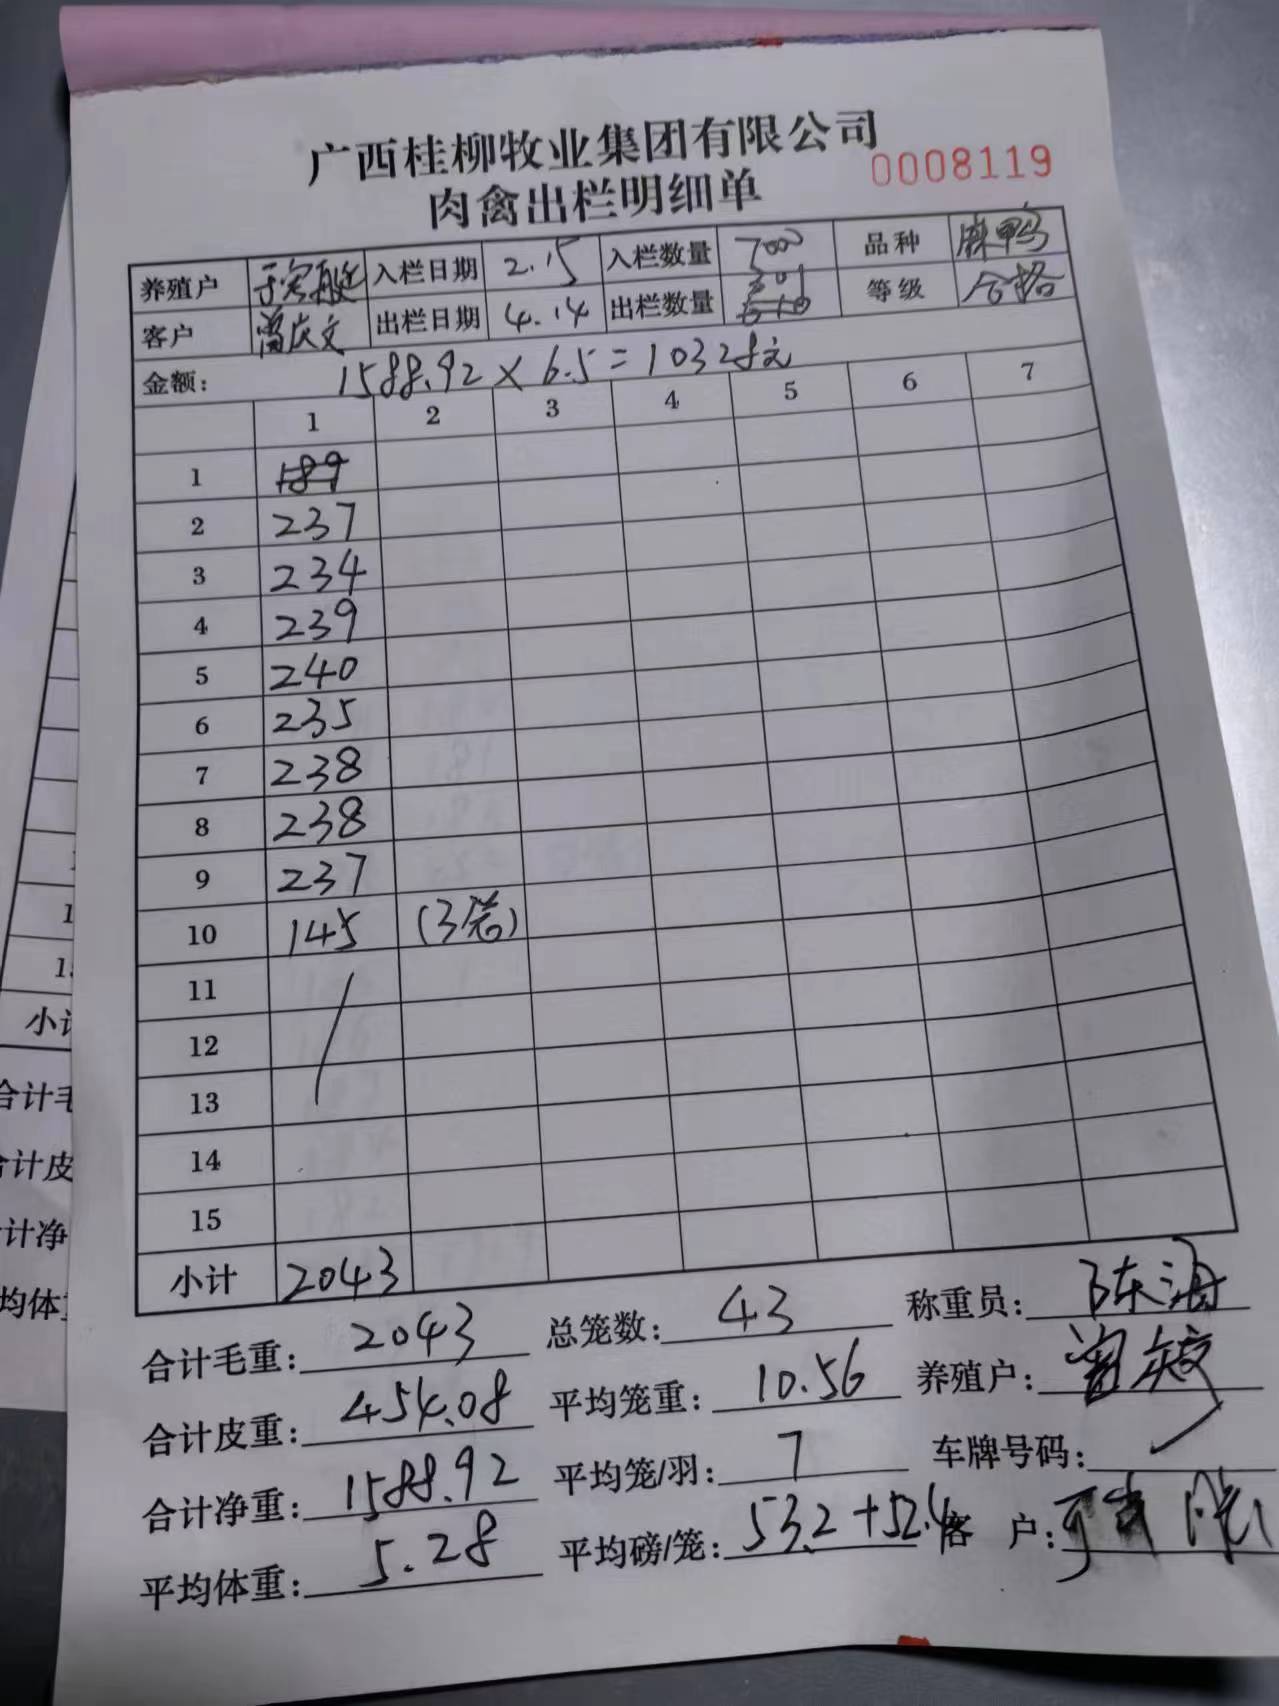 广西桂柳牧业集团有限公司
肉禽出栏明细单 0008119
养殖户 入栏日期 2.15 入栏数量 7000 品种 麻鸭
客户 曾庆文 出栏日期 4.14 出栏数量 301 等级 合格
金额: 1588.92×6.5=10328元
1 2 3 4 5 6 7
1 189
2 237
3 234
4 239
5 240
6 235
7 238
8 238
9 237
10 145 (3笼)
11
12
13
14
15
小计 2043
合计毛重: 2043 总笼数: 43 称重员: 陈海
合计皮重: 454.08 平均笼重: 10.56 养殖户:
合计净重: 1588.92 平均笼/羽: 7 车牌号码:
平均体重: 5.28 平均磅/笼: 53.2+52.4 客户:
小计
合计毛
合计皮
计净
均体